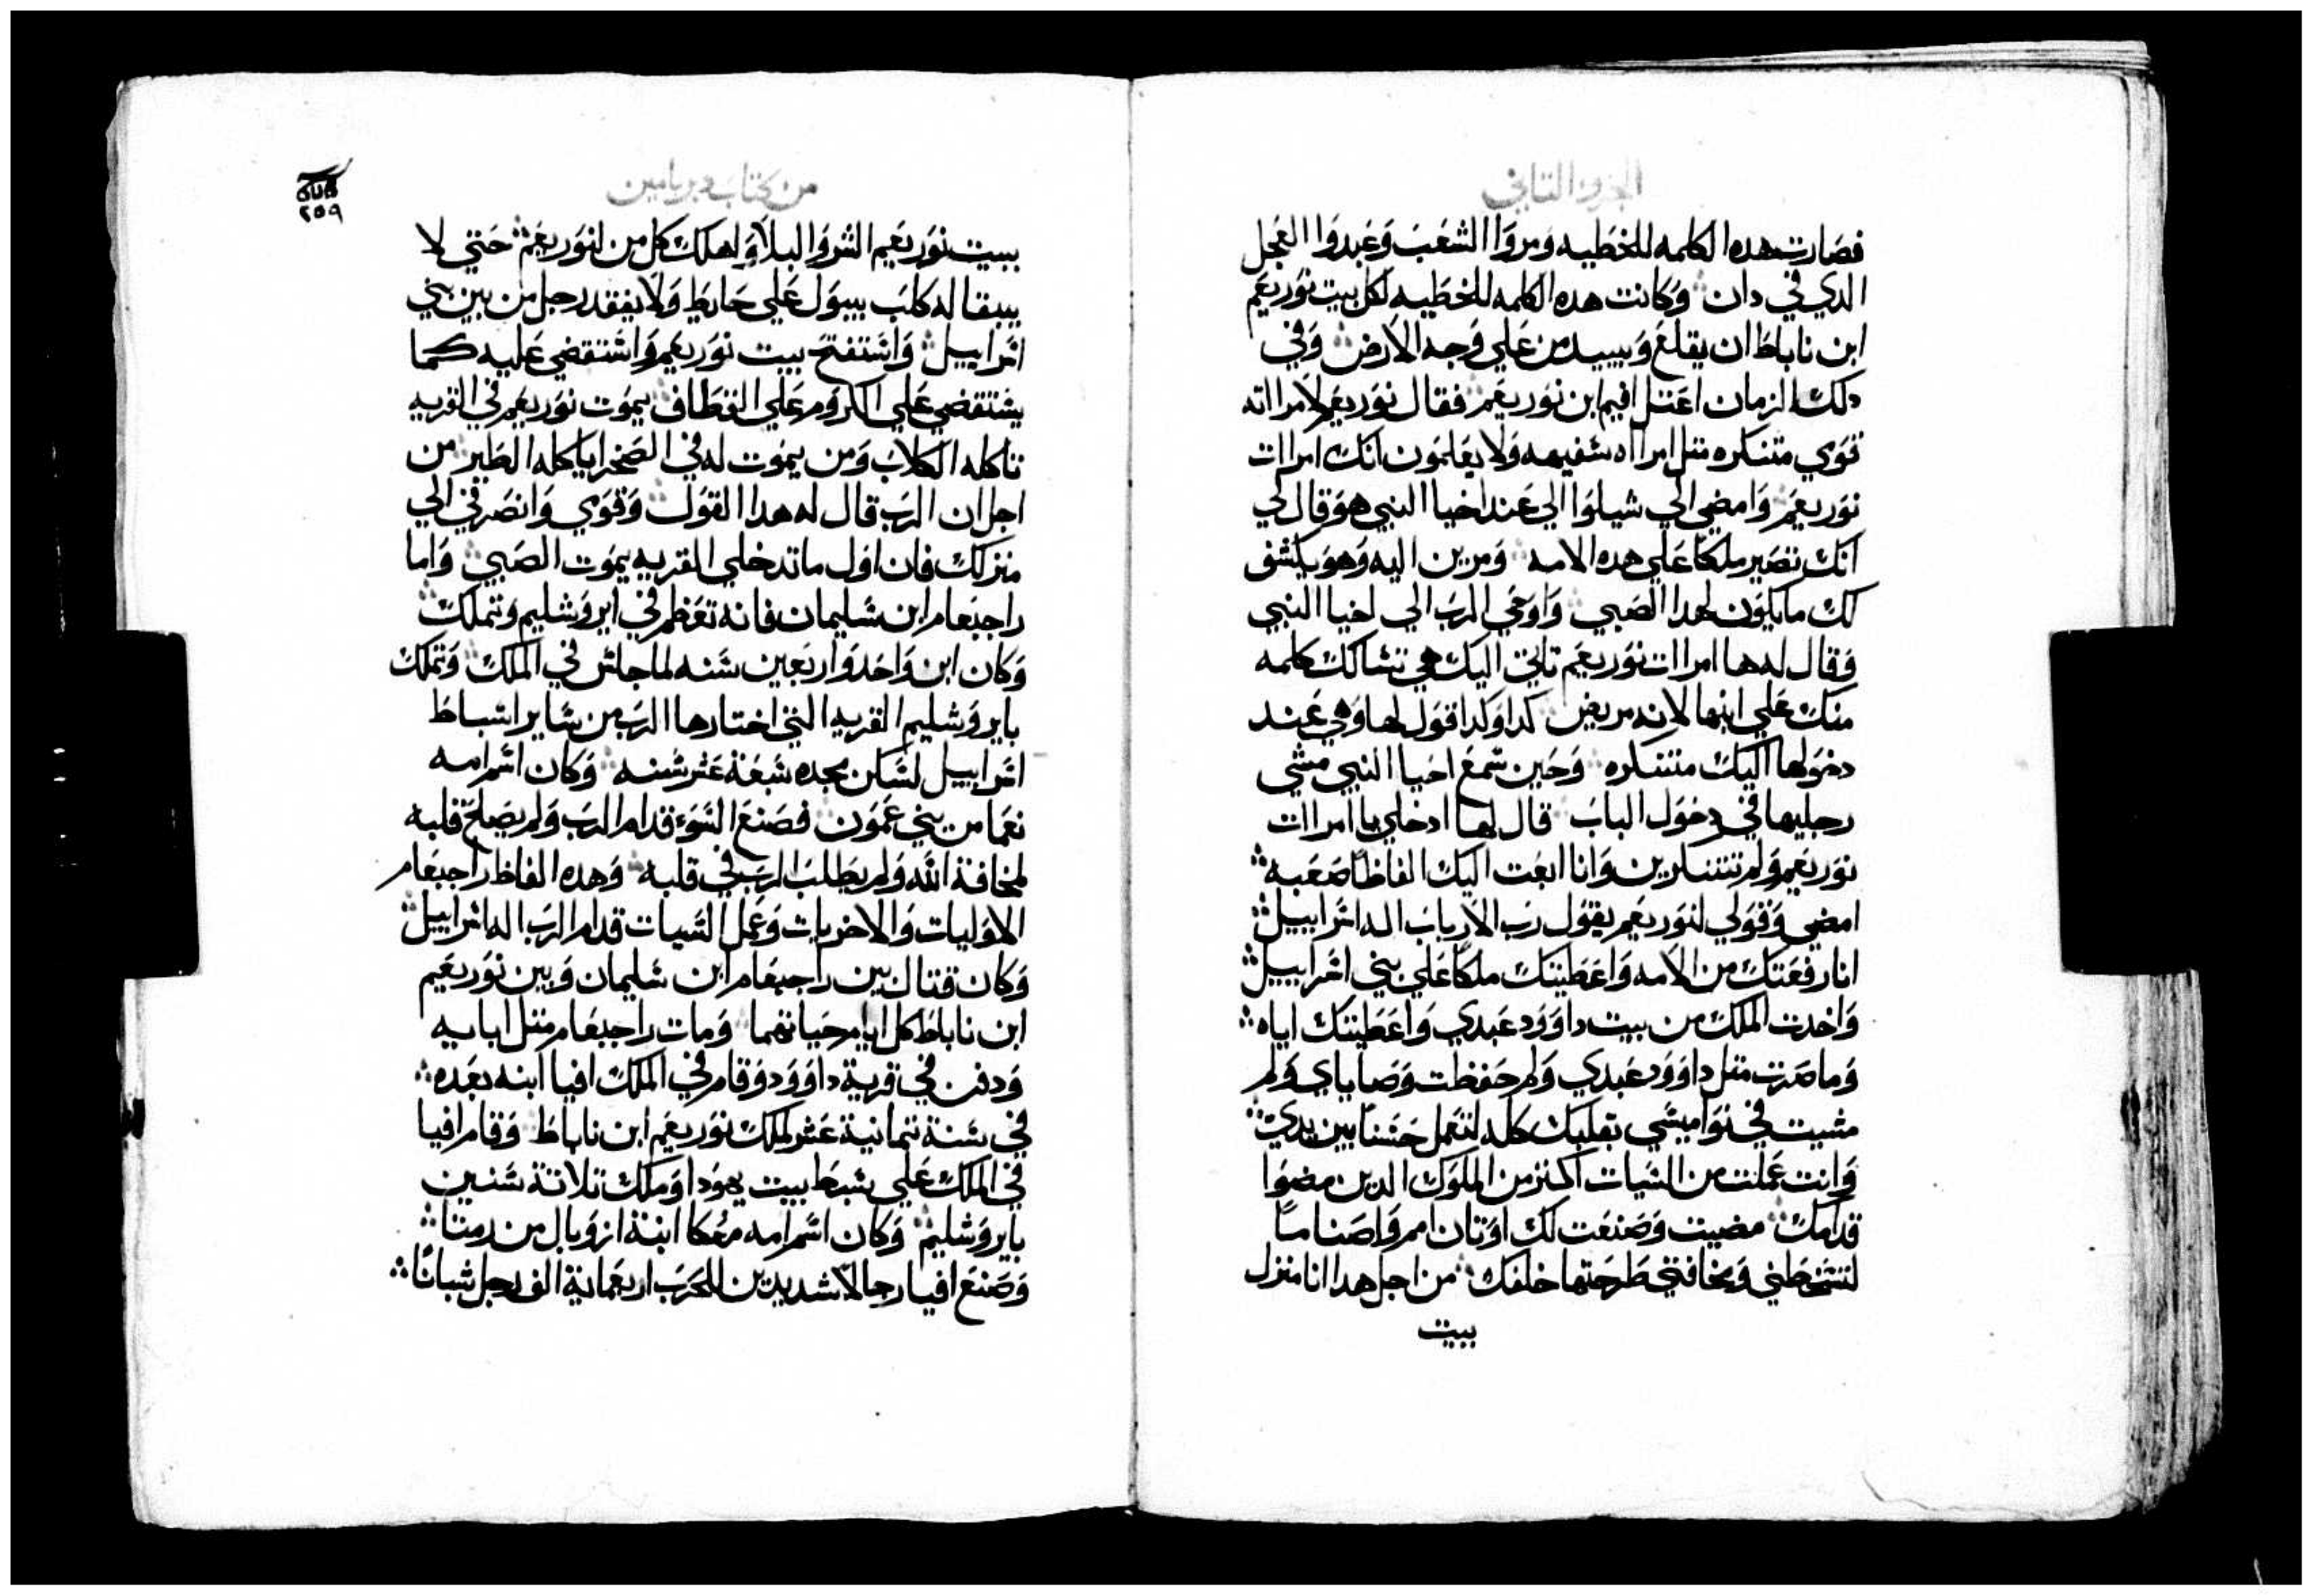 الجزو التاني
فصارت هده الكلمه للخطيه ومروا الشعب وعبدوا العجل
الدي في دان وكانت هده الكلمه للخطيه لكل بيت نوربعم
ابن ناباط ان يقلع ويبيد من علي وجه الارض وفي
دلك الزمان اعتل افيم ابن نوربعم فقال نوربعم لامراته
قومي متنكره متل امراه سفيهه ولا يعلمون انك امرات
نوربعم وامضي الي شيلوا الي عند اخيا النبي هو قال لي
انك تصير ملكا علي هده الامه ومرين اليه وهو يكشف
لك ما يكون لهدا الصبي واوحي الرب الي اخيا النبي
وقال له ها امرات نوربعم تاتي اليك هي تسالك كلمه
منك علي ابنها لانه مريض كدا وكدا قول لها وهي عند
دخولها اليك متنكره وحين سمع اخيا النبي مشي
رجليها في دخول الباب قال لها ادخلي يا امرات
نوربعم ولم تتنكرين وانا ابعت اليك الفاظا صعبه
امضي وقولي لنوربعم يقول رب الارباب اله اسراييل
انا رفعتك من الامه واعطيتك ملكا علي بني اسراييل
واخدت الملك من بيت داوود عبدي واعطيتك اياه
وما صرت متل داوود عبدي ولم حفظت وصاياي ولم
مشيت في نواميسي بقلبك كله لتعمل حسنا بين يدي
وانت عملت من السيات اكتر من الملوك الدين مضوا
قدامك مضيت وصنعت لك اوتان امم واصناما
لتسخطني ومخافتي طرحتها خلفك من اجل هدا انا منزل
ببيت
من كتاب دبريامين
٢٥٩
ببيت نوربعم الشر والبلا واهلك كل من لنوربعم حتي لا
يبقا له كلب يبول علي حايط ولا يفقد رجل من بين بني
اسراييل واستفتح بيت نوربعم واستقضي عليه كما
يستقضي علي الكروم علي القطاف يموت نوربعم في القريه
تاكله الكلاب ومن يموت له في الصحرا ياكله الطير من
اجل ان الرب قال له هدا القول وقومي وانصرفي الي
منزلك فان اول ما تدخلي القريه يموت الصبي واما
راجبعام ابن سليمان فانه تعظم في ايروشليم وتملك
وكان ابن واحد واربعين سنه لما جلس في الملك وتملك
بايروشليم القريه التي اختارها الرب من ساير اسباط
اسراييل لسكن مجده سبعة عشر سنه وكان اسم امه
نعما من بني عمون فصنع السو قدام الرب ولم يصلح قلبه
لمخافة الله ولم يطلب الرب في قلبه وهده الفاظ راجبعام
الاوليات والاخريات وعمل السيات قدام الرب اله اسراييل
وكان قتال بين راجبعام ابن سليمان وبين نوربعم
ابن ناباط كل ايام حياتهما ومات راجبعام متل ابايه
ودفن في قرية داوود وقام في الملك افيا ابنه بعده
في سنة تمانية عشر لملك نوربعم ابن ناباط وقام افيا
في الملك علي سبط بيت يهودا وملك تلاتة سنين
بايروشليم وكان اسم امه معكا ابنة ازوبال من رمتا
وصنع افيا رجالا شديدين للحرب اربعماية الف رجل شبانا